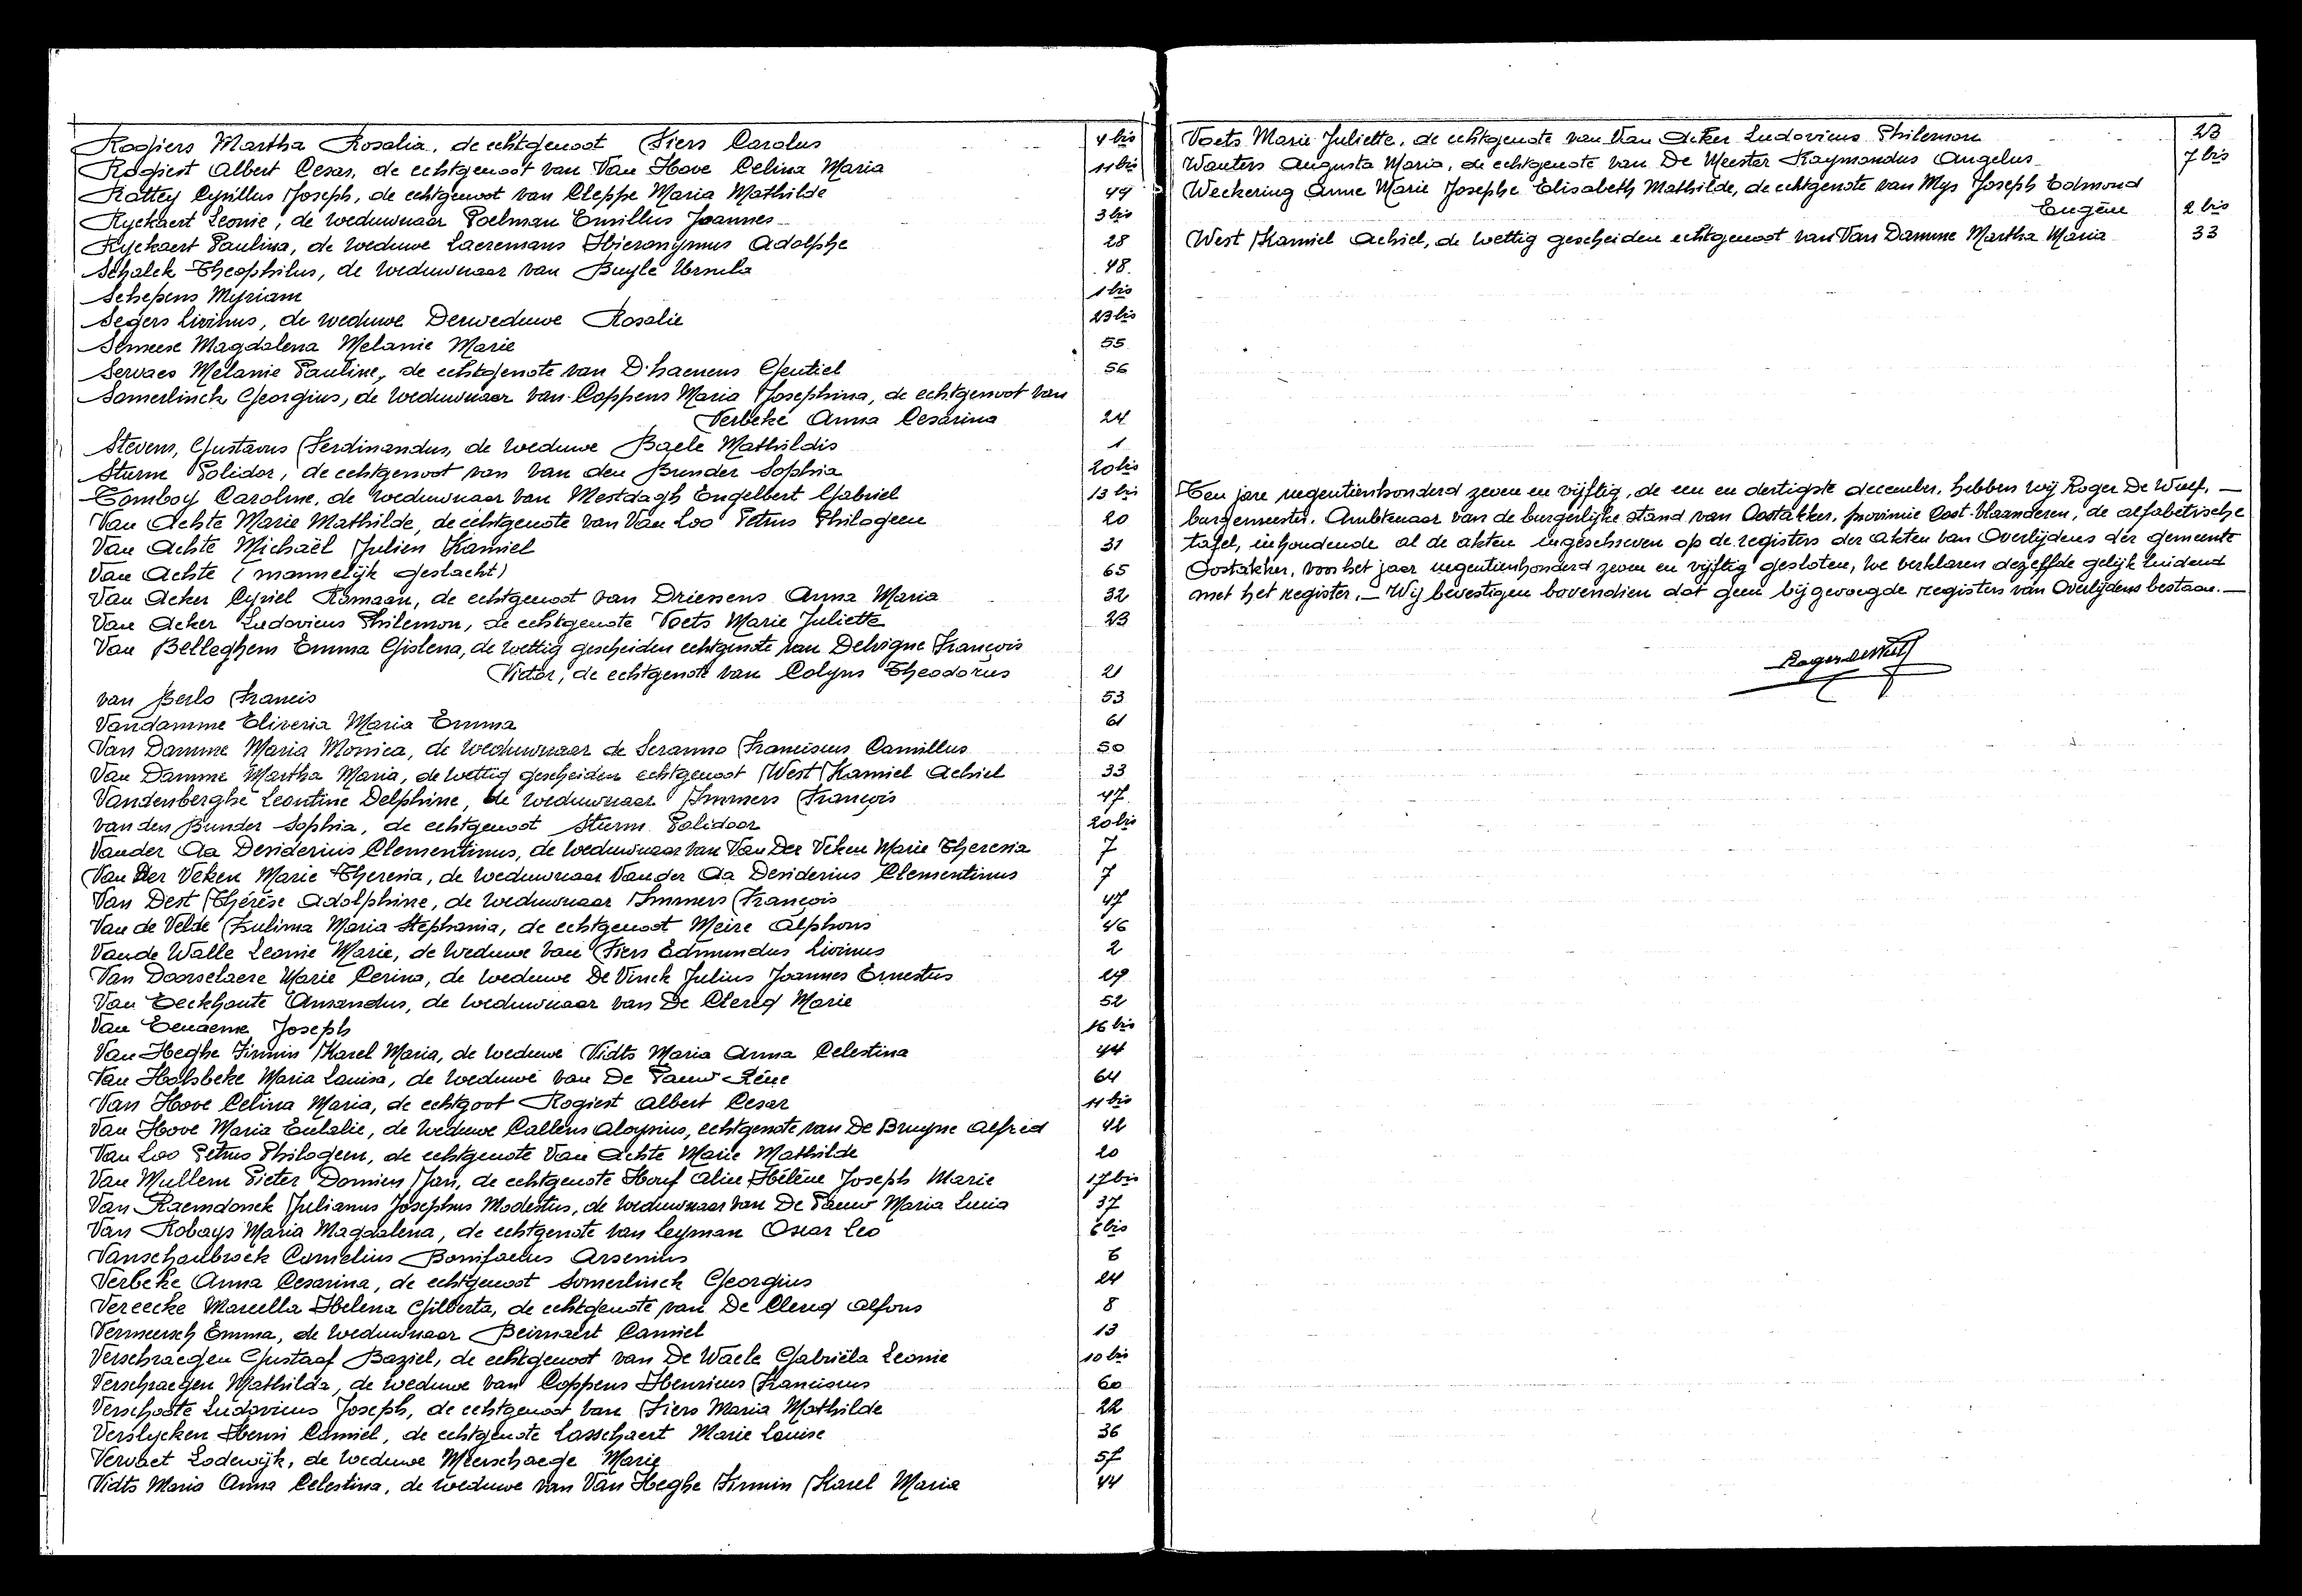 Rogiers Martha Rosalia, de echtgenoot Fiers Carolus 4 bis
Rogiest Albert Cesar, de echtgenoot van Van Hove Celina Maria 11 bis
Rottey Cyrillus Joseph, de echtgenoot van Cleppe Maria Mathilde 49
Ryckaert Leonie, de weduwnaar Poelman Emillus Joannes 3 bis
Ryckaert Paulina, de weduwe Laeremans Hieronymus Adolphe 28
Schalck Theophilus, de weduwnaar van Buyle Ursula 48
Schepens Myriam 1 bis
Segers Livinus, de weduwe Derweduwe Rosalie 23 bis
Semeese Magdalena Melanie Marie 55
Servaes Melanie Pauline, de echtgenote van D'haenens Gentiel 56
Somerlinck Georgius, de weduwnaar van Coppens Maria Josephina, de echtgenoot van
Verbeke Anna Cesarina 24
Stevens, Gustavus Ferdinandus, de weduwe Baele Mathildis 1
Sturm Polidor, de echtgenoot van van den Bunder Sophia 20 bis
Tomboy Caroline, de weduwnaar van Mestdagh Engelbert Gabriel 13 bis
Van Achte Marie Mathilde, de echtgenote van Van Loo Petrus Philogeen 20
Van Achte Michaël Julien Kamiel 31
Van Achte (mannelijk geslacht) 65
Van Acker Cyriel Romaan, de echtgenoot van Driesens Anna Maria 32
Van Acker Ludovicus Philemon, de echtgenote Voets Marie Juliette 23
Van Belleghem Emma Gislena, de wettig gescheiden echtgenote van Delvigne François
Victor, de echtgenote van Colyns Theodorus 21
van Berlo Francis 53
Vandamme Elireria Maria Emma 61
Van Damme Maria Monica, de weduwnaar de Seranno Franciscus Camillus 50
Van Damme Martha Maria, de wettig gescheiden echtgenoot West Kamiel Achiel 33
Vandenberghe Leontine Delphine, de weduwnaar Immers François 47
van den Bunder Sophia, de echtgenoot Sturm Polidoor 20 bis
Vander Aa Desiderius Clementinus, de weduwnaar van Van Der Veken Marie Theresia 7
Van Der Veken Marie Theresia, de weduwnaar Vander Aa Desiderius Clementinus 7
Van Dest Thérèse Adolphine, de weduwnaar Immers François 47
Van de Velde Zulima Maria Stephania, de echtgenoot Meire Alphons 46
Van de Walle Leonie Marie, de weduwe van Fiers Edmundus Livinus 2
Van Doorselaere Marie Cerina, de weduwe De Vinck Julius Joannes Ernestus 29
Van Eeckhoute Amandus, de weduwnaar van De Clercq Marie 52
Van Eenaeme Joseph 16 bis
Van Heghe Firmin Karel Maria, de weduwe Vidts Maria Anna Celestina 44
Van Holsbeke Maria Louisa, de weduwe van De Pauw Réne 64
Van Hove Celina Maria, de echtgoot Rogiest Albert Cesar 11 bis
Van Hove Maria Eulalie, de weduwe Callens Aloysius, echtgenote van De Bruyne Alfred 42
Van Loo Petrus Philogeen, de echtgenote Van Achte Marie Mathilde 20
Van Mullem Pieter Damien Jan, de echtgenote Houf Aline Hélène Joseph Marie 17 bis
Van Raemdonck Julianus Josephus Modestus, de weduwnaar van De Pauw Maria Lucia 37
Van Robays Maria Magdalena, de echtgenote van Leyman Oscar Leo 6 bis
Vanschoubroek Cornelius Bonifacius Arsenius 6
Verbeke Anna Cesarina, de echtgenoot Somerlinck Georgius 24
Vereecke Marcella Helena Gilberta, de echtgenote van De Clercq Alfons 8
Vermeersch Emma, de weduwnaar Beirnaert Camiel 13
Verschraegen Gustaaf Baziel, de echtgenoot van De Waele Gabriëla Leonie 10 bis
Verschraegen Mathilda, de weduwe van Coppens Henricus Franciscus 60
Verschoote Ludovicus Joseph, de echtgenoot van Fiers Maria Mathilde 22
Verslycken Henri Camiel, de echtgenote Lasschaert Marie Louise 36
Vervaet Lodewijk, de weduwe Meerschaege Marie 57
Vidts Maria Anna Celestina, de weduwe van Van Heghe Firmin Karel Maria 44
Voets Marie Juliette, de echtgenote van Van Acker Ludovicus Philemon 23
Wauters Augusta Maria, de echtgenote van De Meester Raymondus Angelus 7 bis
Weckering Anne Marie Josephe Elisabeth Mathilde, de echtgenote van Mys Joseph Edmond
Eugène 2 bis
West Kamiel Achiel, de wettig gescheiden echtgenoot van Van Damme Martha Maria 33
Ten jare negentienhonderd zeven en vijftig, de een en dertigste december, hebben wij Roger De Wulf, —
burgemeester, Ambtenaar van de burgerlijke stand van Oostakker, provincie Oost-Vlaanderen, de alfabetische
tafel, inhoudende al de akten ingeschreven op de registers der akten van Overlijdens der gemeente
Oostakker, voor het jaar negentienhonderd zeven en vijftig gesloten, we verklaren dezelfde gelijk luidend
met het register. — Wij bevestigen bovendien dat geen bijgevoegde registers van Overlijdens bestaan. —
Roger De Wulf